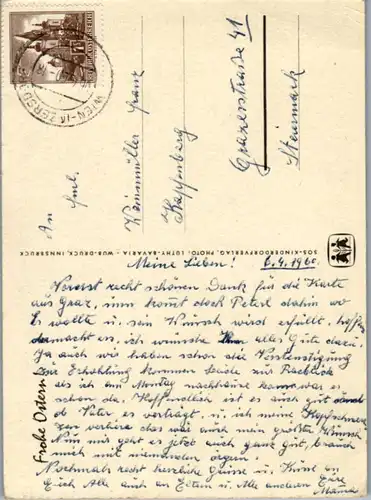 WIEN
An Fml.
Weinmüller Franz
Kapfenberg
Grazerstraße 41
Steiermark
SOS-KINDERDORFVERLAG, PHOTO: LUTHY-BAVARIA - WUB-DRUCK, INNSBRUCK
Meine Lieben! 6.4.1960.
Vorerst recht schönen Dank für die Karte
aus Graz, nun kommt doch Peterl dahin wo
Er wollte u. sein Wunsch wird erfüllt, hoffen
macht es, ich wünsche Ihm alles Gute dazu.
Ja auch wir haben schon die Verständigung
zur Erhohlung kommen beide zur
als ich am Montag nachhause kam war es
schon da. Hoffendlich ist es auch gut
ob Vater es verträgt, u. ich meine Kopfschmer
zen verliere das wär auch mein größter Wunsch
Nun mir geht es jetzt auch ganz gut, brauch
mich mit niemanden
Nochmals recht herzliche Grüsse u. Küsse an
Euch Alle auch an Eltern u. Alle anderen Eure
Mama
Frohe Ostern